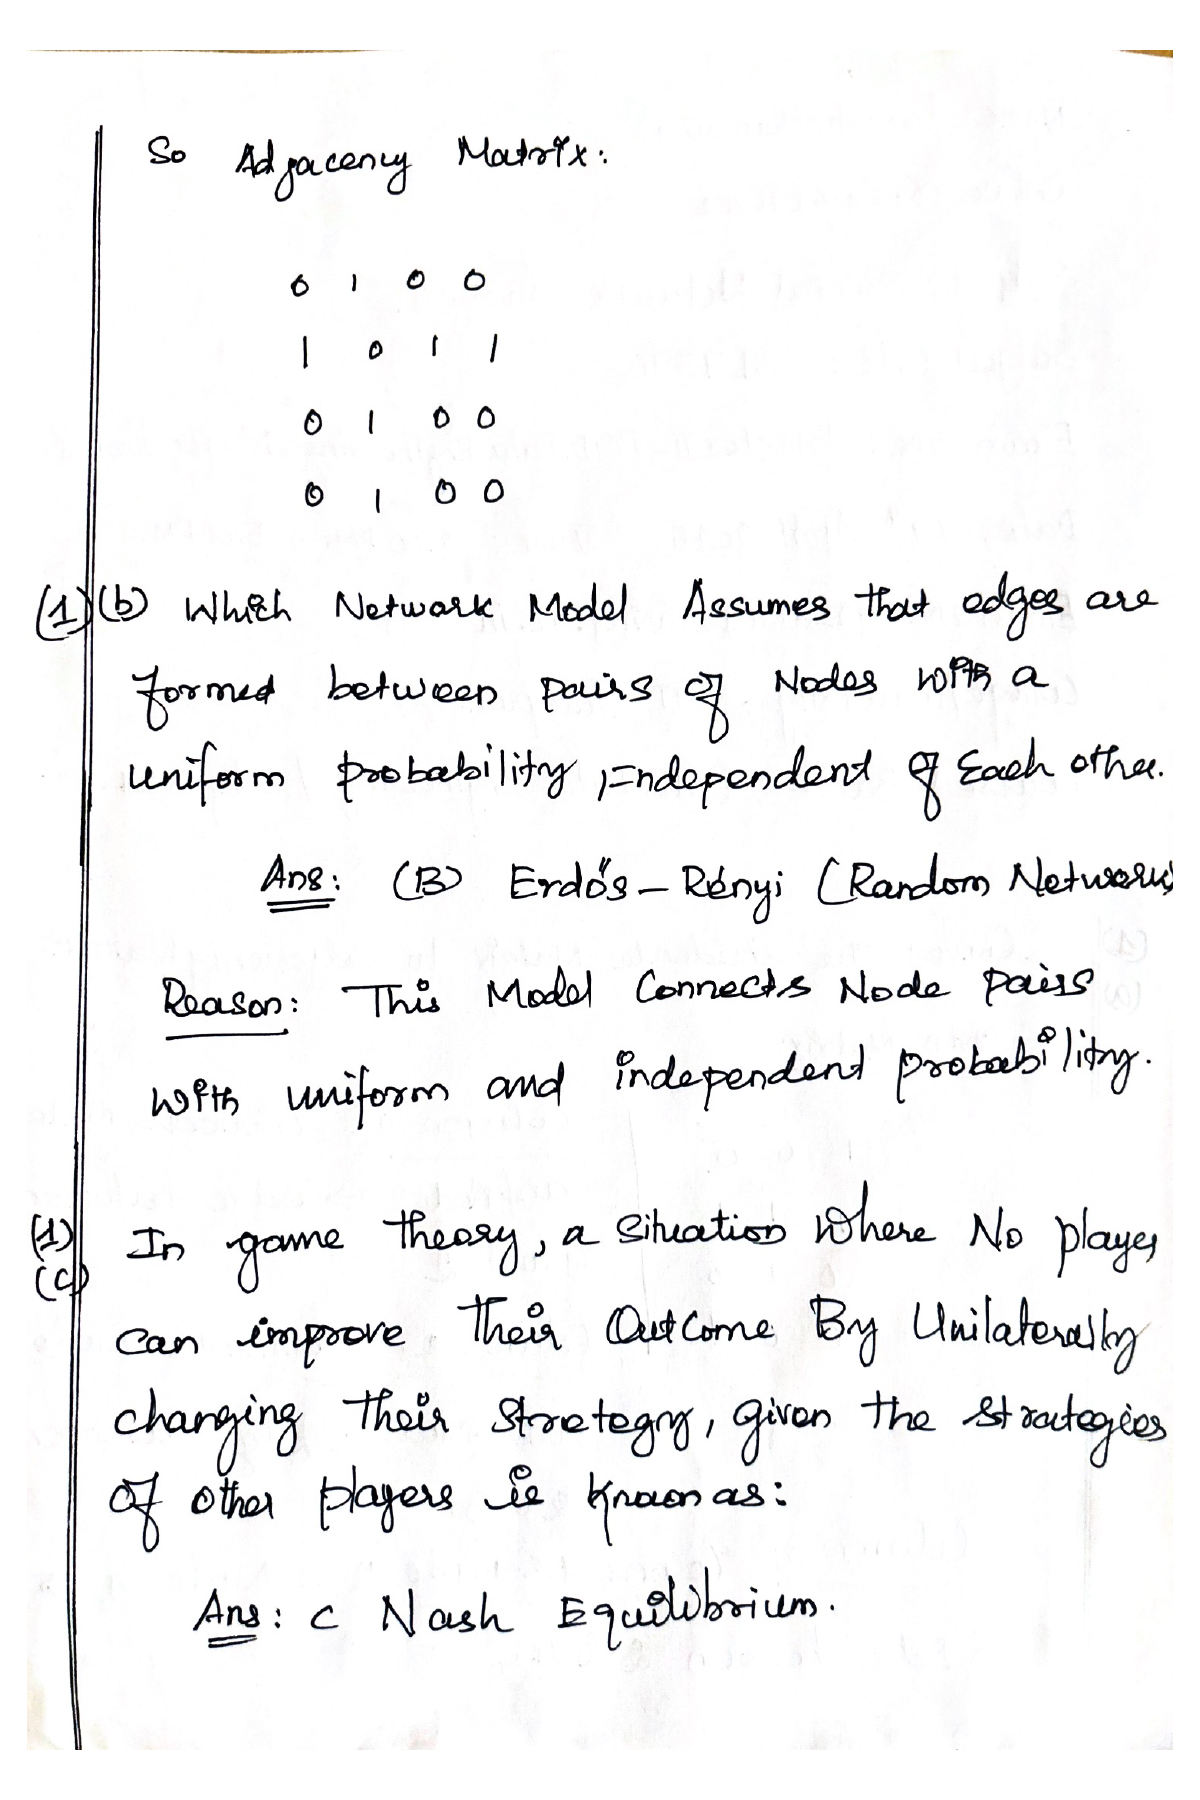 So Adjacency Matrix:
0 1 0 0
1 0 1 1
0 1 0 0
0 1 0 0
(1)(b) Which Network Model Assumes that edges are
formed between pairs of Nodes with a
uniform probability, Independent of Each other.
Ans: (B) Erdős – Rényi (Random Network)
Reason: This Model Connects Node pairs
with uniform and independent probability.
(1)
(c) In game theory, a Situation Where No player
can improve their OutCome By Unilaterally
changing their Strategy, given the strategies
of other players is known as:
Ans: C Nash Equilibrium.